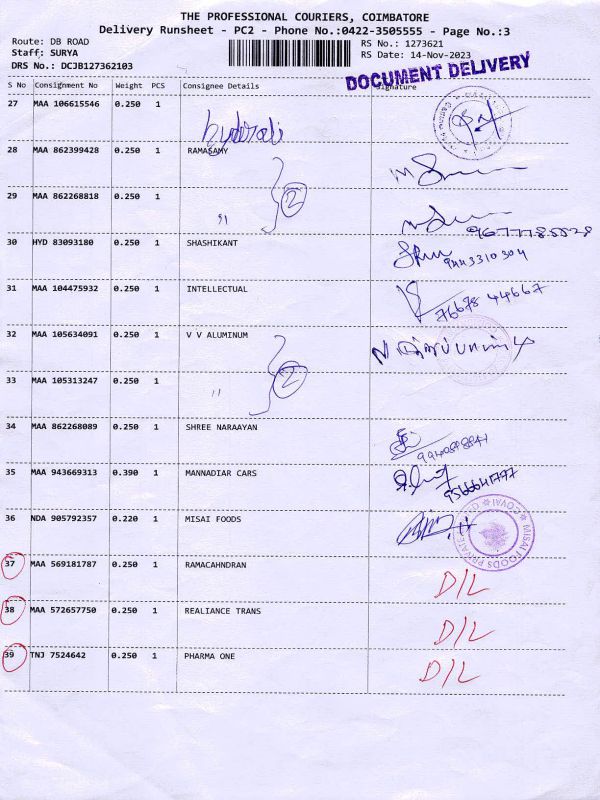 THE PROFESSIONAL COURIERS, COIMBATORE
Delivery Runsheet - PC2 - Phone No.:0422-3505555 - Page No.:3
Route: DB ROAD
Staff: SURYA
DRS No.: DCJB127362103
RS No.: 1273621
RS Date: 14-Nov-2023
DOCUMENT DELIVERY
S No Consignment No Weight PCS Consignee Details Signature
27 MAA 106615546 0.250 1
28 MAA 862399428 0.250 1 RAMASAMY
29 MAA 862268818 0.250 1 " 2
30 HYD 83093180 0.250 1 SHASHIKANT 9443310304
31 MAA 104475932 0.250 1 INTELLECTUAL 76678 44667
32 MAA 105634091 0.250 1 V V ALUMINUM
33 MAA 105313247 0.250 1 " 2
34 MAA 862268089 0.250 1 SHREE NARAAYAN
35 MAA 943669313 0.390 1 MANNADIAR CARS
36 NDA 905792357 0.220 1 MISAI FOODS
MISAI FOODS PRIVATE COVAI
37 MAA 569181787 0.250 1 RAMACAHNDRAN D/L
38 MAA 572657750 0.250 1 REALIANCE TRANS D/L
39 TNJ 7524642 0.250 1 PHARMA ONE D/L